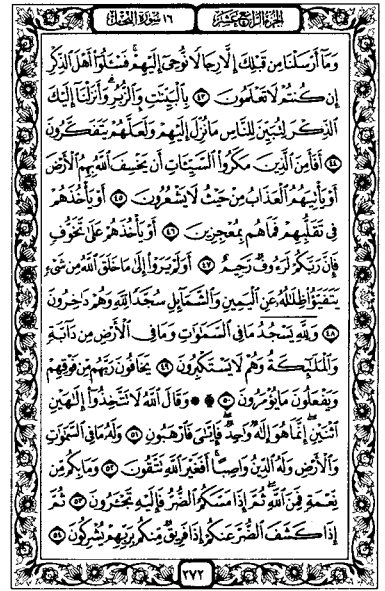 الجزء الرابع عشر ١٦ سورة النحل
وَمَا أَرْسَلْنَا مِن قَبْلِكَ إِلَّا رِجَالًا نُّوحِي إِلَيْهِمْ ۚ فَسْـَٔلُوٓا۟ أَهْلَ الذِّكْرِ
إِن كُنتُمْ لَا تَعْلَمُونَ ٤٣ بِالْبَيِّنَٰتِ وَالزُّبُرِ ۗ وَأَنزَلْنَا إِلَيْكَ
الذِّكْرَ لِتُبَيِّنَ لِلنَّاسِ مَا نُزِّلَ إِلَيْهِمْ وَلَعَلَّهُمْ يَتَفَكَّرُونَ
٤٤ أَفَأَمِنَ الَّذِينَ مَكَرُوا السَّيِّـَٔاتِ أَن يَخْسِفَ اللَّهُ بِهِمُ الْأَرْضَ
أَوْ يَأْتِيَهُمُ الْعَذَابُ مِنْ حَيْثُ لَا يَشْعُرُونَ ٤٥ أَوْ يَأْخُذَهُمْ
فِي تَقَلُّبِهِمْ فَمَا هُم بِمُعْجِزِينَ ٤٦ أَوْ يَأْخُذَهُمْ عَلَىٰ تَخَوُّفٍ
فَإِنَّ رَبَّكُمْ لَرَءُوفٌ رَّحِيمٌ ٤٧ أَوَلَمْ يَرَوْا إِلَىٰ مَا خَلَقَ اللَّهُ مِن شَيْءٍ
يَتَفَيَّؤُا ظِلَٰلُهُ عَنِ الْيَمِينِ وَالشَّمَائِلِ سُجَّدًا لِّلَّهِ وَهُمْ دَاخِرُونَ
٤٨ وَلِلَّهِ يَسْجُدُ مَا فِي السَّمَٰوَٰتِ وَمَا فِي الْأَرْضِ مِن دَابَّةٍ
وَالْمَلَٰٓئِكَةُ وَهُمْ لَا يَسْتَكْبِرُونَ ٤٩ يَخَافُونَ رَبَّهُم مِّن فَوْقِهِمْ
وَيَفْعَلُونَ مَا يُؤْمَرُونَ ۩ ٥٠ ۞ وَقَالَ اللَّهُ لَا تَتَّخِذُوا إِلَٰهَيْنِ
اثْنَيْنِ ۖ إِنَّمَا هُوَ إِلَٰهٌ وَٰحِدٌ ۖ فَإِيَّٰيَ فَارْهَبُونِ ٥١ وَلَهُ مَا فِي السَّمَٰوَٰتِ
وَالْأَرْضِ وَلَهُ الدِّينُ وَاصِبًا ۚ أَفَغَيْرَ اللَّهِ تَتَّقُونَ ٥٢ وَمَا بِكُم مِّن
نِّعْمَةٍ فَمِنَ اللَّهِ ۖ ثُمَّ إِذَا مَسَّكُمُ الضُّرُّ فَإِلَيْهِ تَجْـَٔرُونَ ٥٣ ثُمَّ
إِذَا كَشَفَ الضُّرَّ عَنكُمْ إِذَا فَرِيقٌ مِّنكُم بِرَبِّهِمْ يُشْرِكُونَ ٥٤
٢٧٢